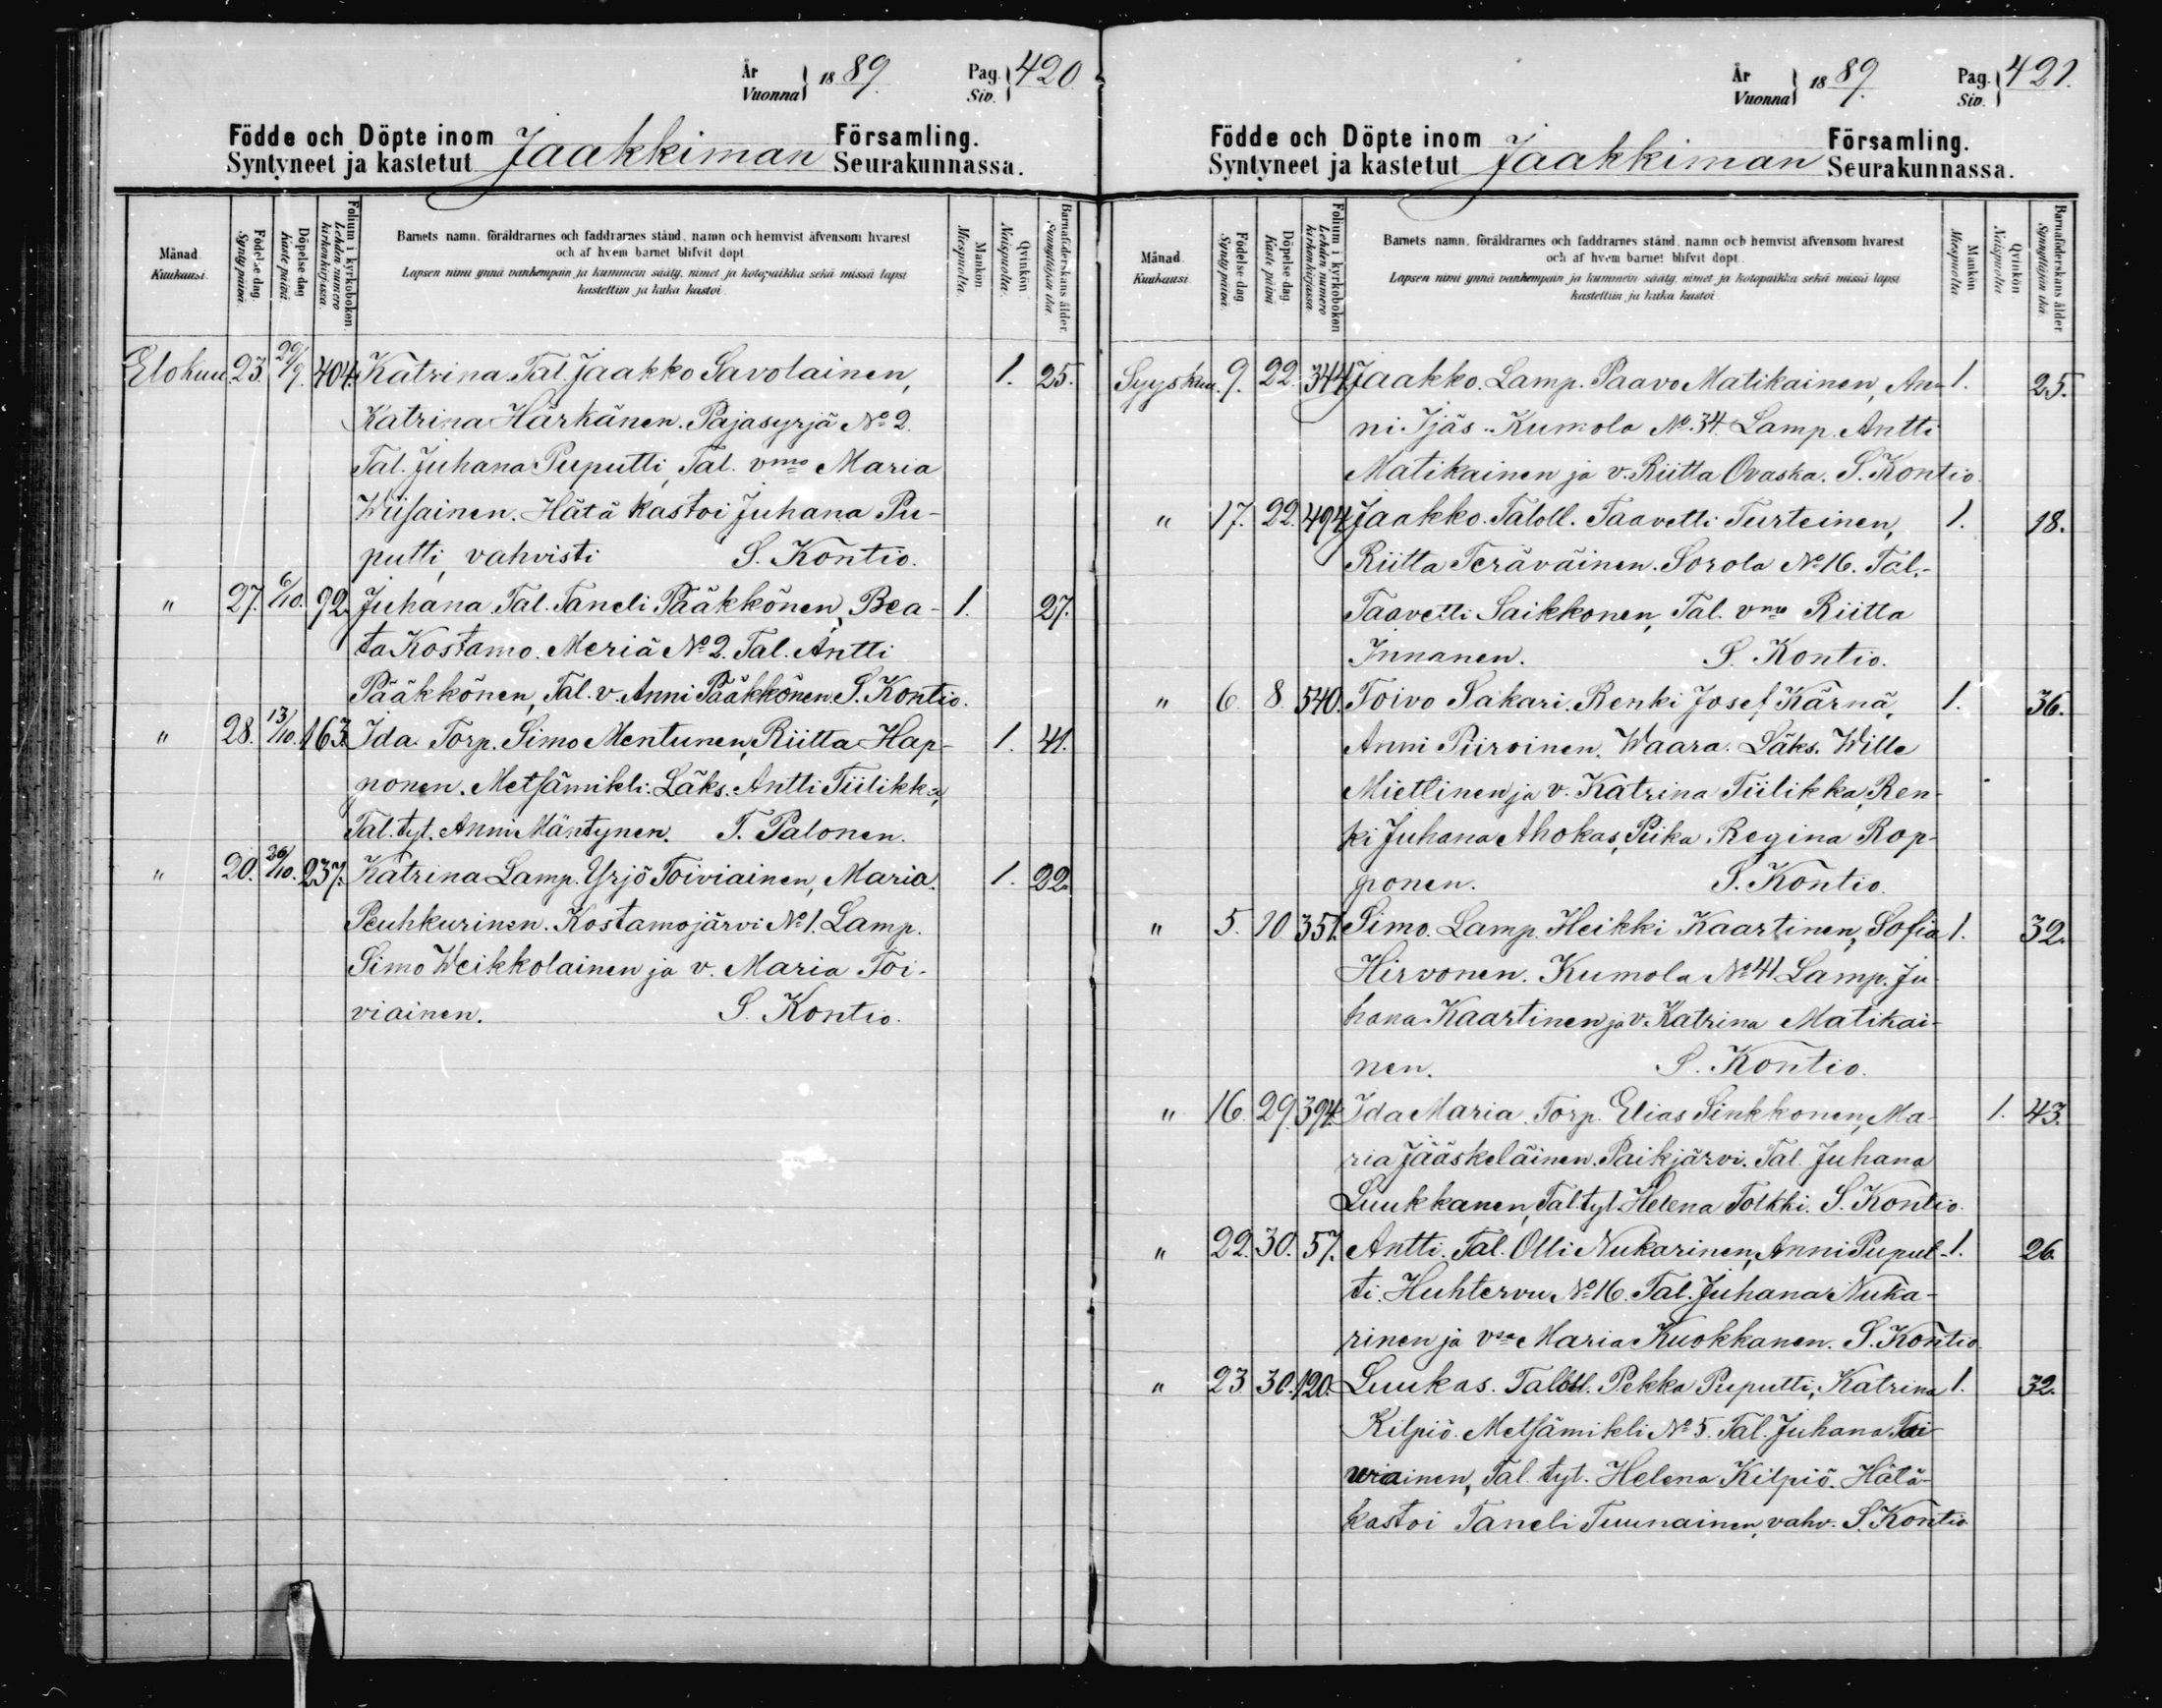 År
Vuonna } 1889. Pag.
Siv. } 420
Födde och Döpte inom
Syntyneet ja kastetut Jaakkiman Församling.
Seurakunnassa.
Månad.
Kuukausi.
Födelse dag
Syntypäivä.
Döpelse dag
Kaste päivä
Folium i kyrkoboken.
Lehden numero
kirkonkirjassa.
Barnets namn, föräldrarnes och faddrarnes stånd, namn och hemvist äfvensom hvarest
och af hvem barnet blifvit döpt.
Lapsen nimi ynnä vanhempain ja kummein sääty, nimet ja kotopaikka sekä missä lapsi
kastettiin ja kuka kastoi.
Mankön.
Miespuolta.
Qvinkön.
Naispuolta.
Barnaföderskans ålder.
Synnyttäjän ikä.
Elokuu. 23. 29/9. 404. Katrina. Tal. Jaakko Savolainen, 1. 25.
Katrina Härkänen. Pajasyrjä No 2.
Tal. Juhana Puputti, Tal. vmo Maria
Wiisainen. Hätä kastoi Juhana Pu-
putti, vahvisti S. Kontio.
" 27. 6/10. 92. Juhana. Tal. Taneli Pääkkönen, Bea- 1. 27.
ta Kostamo. Meriä No 2. Tal. Antti
Pääkkönen, Tal. v. Anni Pääkkönen. S. Kontio.
" 28. 13/10. 163. Ida. Torp. Simo Mentunen, Riitta Hap- 1. 41.
ponen. Metsämikli. Läks. Antti Tiilikka,
Tal. tyt. Anni Mäntynen. T. Palonen.
" 20. 26/10. 237. Katrina Lamp. Yrjö Toiviainen, Maria. 1. 22.
Peuhkurinen. Kostamojärvi No 1. Lamp.
Simo Weikkolainen ja v. Maria Toi-
viainen. S. Kontio.
År
Vuonna } 1889. Pag.
Siv. } 421.
Födde och Döpte inom
Syntyneet ja kastetut Jaakkiman Församling.
Seurakunnassa.
Månad.
Kuukausi.
Födelse dag
Syntypäivä.
Döpelse dag
Kaste päivä
Folium i kyrkoboken
Lehden numero
kirkonkirjassa.
Barnets namn, föräldrarnes och faddrarnes stånd, namn och hemvist äfvensom hvarest
och af hvem barnet blifvit döpt.
Lapsen nimi ynnä vanhempain ja kummein sääty, nimet ja kotopaikka sekä missä lapsi
kastettiin ja kuka kastoi.
Mankön
Miespuolta
Qvinkön
Naispuolta
Barnaföderskans ålder
Synnyttäjän ikä
Syyskuu. 9. 22. 344. Jaakko. Lamp. Paavo Matikainen, An- 1. 25.
ni Ijäs. Kumola No. 34. Lamp. Antti
Matikainen ja v. Riitta Ovaska. S. Kontio.
" 17. 22. 494. Jaakko. Taloll. Taavetti Turteinen, 1. 18.
Riitta Teräväinen. Sorola No 16. Tal.
Taavetti Saikkonen, Tal. vmo Riitta
Innanen. S. Kontio.
" 6. 8. 540. Toivo Sakari. Renki Josef Kärnä, 1. 36.
Anni Piiroinen. Waara. Läks. Wille
Miettinen ja v. Katrina Tiilikka, Ren-
ki Juhana Ahokas, Piika Regina Rop-
ponen. S. Kontio.
" 5. 10 351. Simo. Lamp. Heikki Kaartinen, Sofia 1. 32.
Hirvonen. Kumola No 41. Lamp. Ju-
hana Kaartinen ja v. Katrina Matikai-
nen. S. Kontio.
" 16. 29. 394. Ida Maria. Torp. Elias Sinkkonen, Ma- 1. 43.
ria Jääskeläinen. Paikjärvi. Tal. Juhana
Luukkanen, Tal. tyt. Helena Tolkki. S. Kontio.
" 22. 30. 57. Antti. Tal. Olli Nukarinen, Anni Puput- 1. 26.
ti. Huhtervu No 16. Tal. Juhana Nuka-
rinen ja vsa Maria Kuokkanen. S. Kontio.
" 23. 30. 120. Luukas. Taloll. Pekka Puputti, Katrina 1. 32.
Kilpiö. Metsämikli No 5. Tal. Juhana Toi-
viainen, Tal. tyt. Helena Kilpiö. Hätä-
kastoi Taneli Tuunainen, vahv. S. Kontio